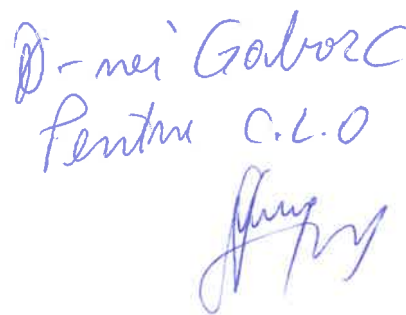 D-nei Gabor C
Pentru C.L.O